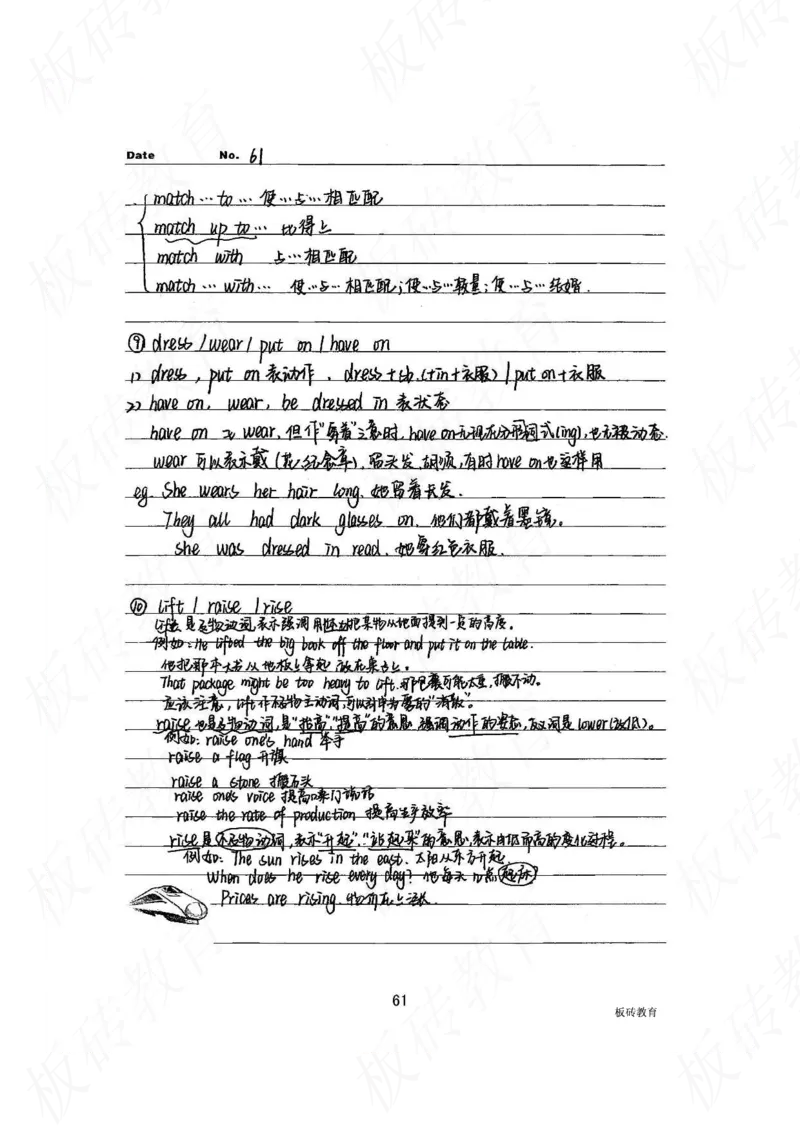 Date No. 61
match … to … 使…与…相匹配
match up to … 比得上
match with 与…相匹配
match … with … 使…与…相匹配；使…与…较量；使…与…结婚．
⑨ dress / wear / put on / have on
1) dress , put on 表动作 . dress + sb. (+in+衣服) / put on + 衣服
2) have on , wear , be dressed in 表状态
have on 可 wear, 但作"穿着"之意时, have on 无现在分词形式(ing), 也无被动态.
wear 可以表示戴 (花、纪念章), 留头发、胡须, 有时 have on 也这样用
eg. She wears her hair long. 她留着长发.
They all had dark glasses on. 他们都戴着墨镜。
she was dressed in read. 她穿红色衣服.
⑩ lift / raise / rise
lift 是及物动词, 表示强调用体力把某物从地面提到一定的高度。
例如: He lifted the big book off the floor and put it on the table.
他把那本大书从地板上拿起放在桌子上。
That package might be too heavy to lift. 那包裹可能太重, 搬不动。
应该注意, lift 作不及物主动词, 可以对作为雾的"消散"。
raise 也是及物动词, 是"抬高""提高"的意思, 强调动作的姿态, 反义词是 lower (放低)。
例如: raise one's hand 举手
raise a flag 升旗
raise a stone 搬石头
raise one's voice 提高嗓门说话
raise the rate of production 提高生产效率
rise 是不及物动词, 表示"升起"、"站起来"的意思, 表示由低而高的变化过程。
例如: The sun rises in the east. 太阳从东方升起.
When does he rise every day? 他每天几点起床?
Prices are rising. 物价在上涨.
61
板砖教育
板砖教育